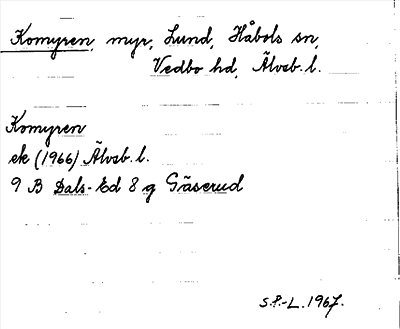 Komyren, myr, Lund, Håbols sn,
Vedbo hd, Älvsb. l.
Komyren
ek (1966) Älvsb. l.
9 B Dals-Ed 8 g Gäserud
S.P.-L. 1967.